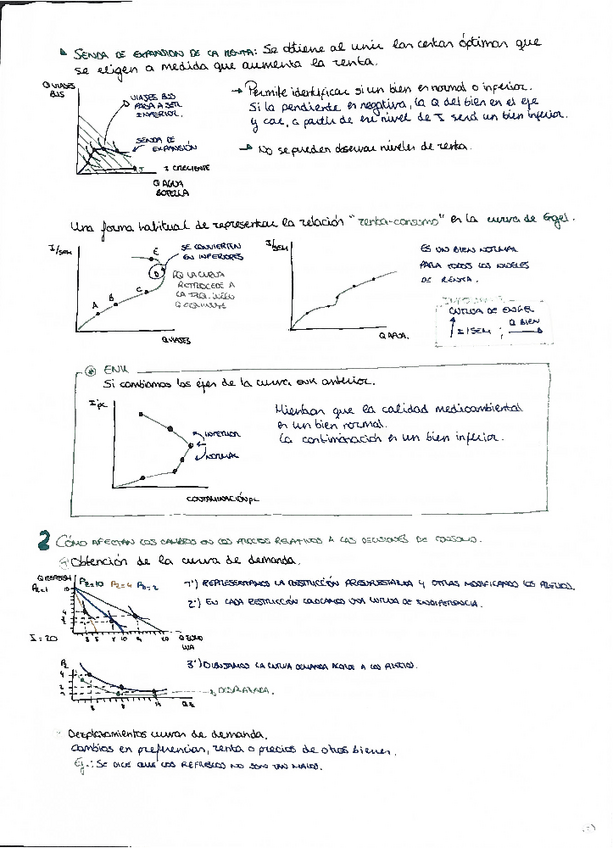 SENDA DE EXPANSIÓN DE LA RENTA: Se obtiene al unir las cestas óptimas que
se eligen a medida que aumenta la renta.
Q VIAJES
BUS
VIAJES BUS
PASA A SER
INFERIOR.
SENDA DE
EXPANSIÓN
I CRECIENTE
Q AGUA
BOTELLA
→ Permite identificar si un bien es normal o inferior.
Si la pendiente es negativa, la Q del bien en el eje
y cae, a partir de ese nivel de I será un bien inferior.
→ No se pueden observar niveles de renta.
Una forma habitual de representar la relación "renta-consumo" es la curva de Engel.
I/SEM
A B C D E
SE CONVIERTEN
EN INFERIORES
LA CURVA
RETROCEDE A
Q VIAJES
I/SEM
Q AGUA.
ES UN BIEN NORMAL
PARA TODOS LOS NIVELES
DE RENTA.
CURVA DE ENGEL
I/SEM ; Q BIEN
ENK
Si cambiamos los ejes de la curva ENK anterior.
I pc
INFERIOR
NORMAL
CONTAMINACIÓN pc
Mientras que la calidad medioambiental
es un bien normal.
La contaminación es un bien inferior.
2 CÓMO AFECTAN LOS CAMBIOS EN LOS PRECIOS RELATIVOS A LAS DECISIONES DE CONSUMO.
Obtención de la curva de demanda.
Q REFRESH
P₂=10 P₂=4 P₂=2
I=20
1º) REPRESENTAMOS LA RESTRICCIÓN PRESUPUESTARIA Y OTRAS MODIFICANDO LOS PRECIOS.
2º) EN CADA RESTRICCIÓN COLOCAMOS UNA CURVA DE INDIFERENCIA.
3º) DIBUJAMOS LA CURVA DEMANDA
DEMANDA.
Desplazamientos curvas de demanda.
Cambios en preferencias, renta o precios de otros bienes.
Ej.: SE DICE QUE LOS REFRESCOS NO SON TAN MALOS.